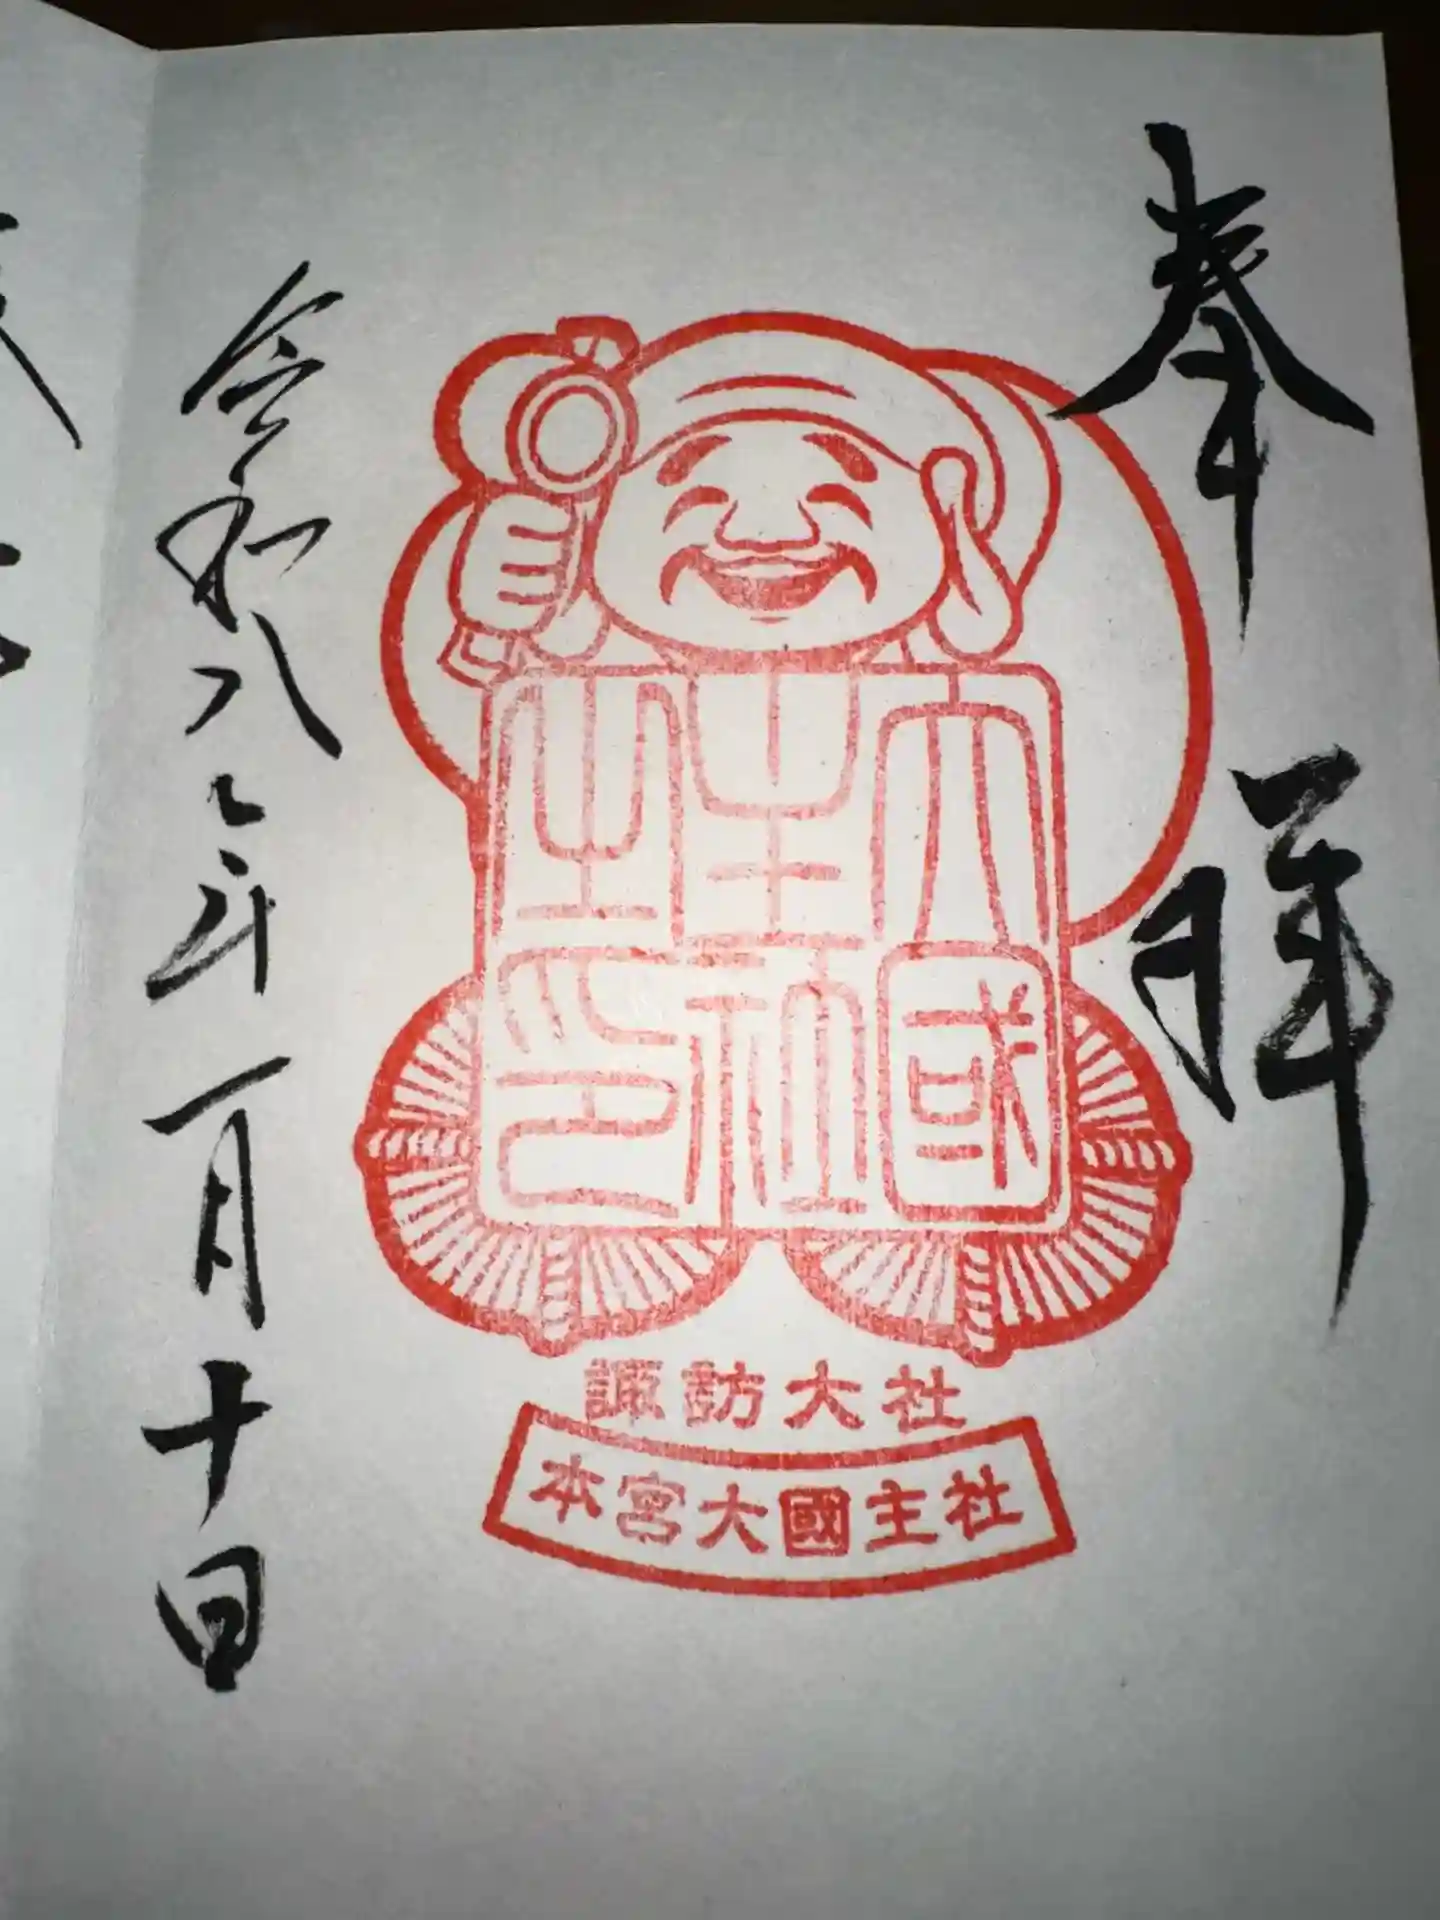 奉拝
大國
主社
之印
諏訪大社
本宮大國主社
令和八年一月十日